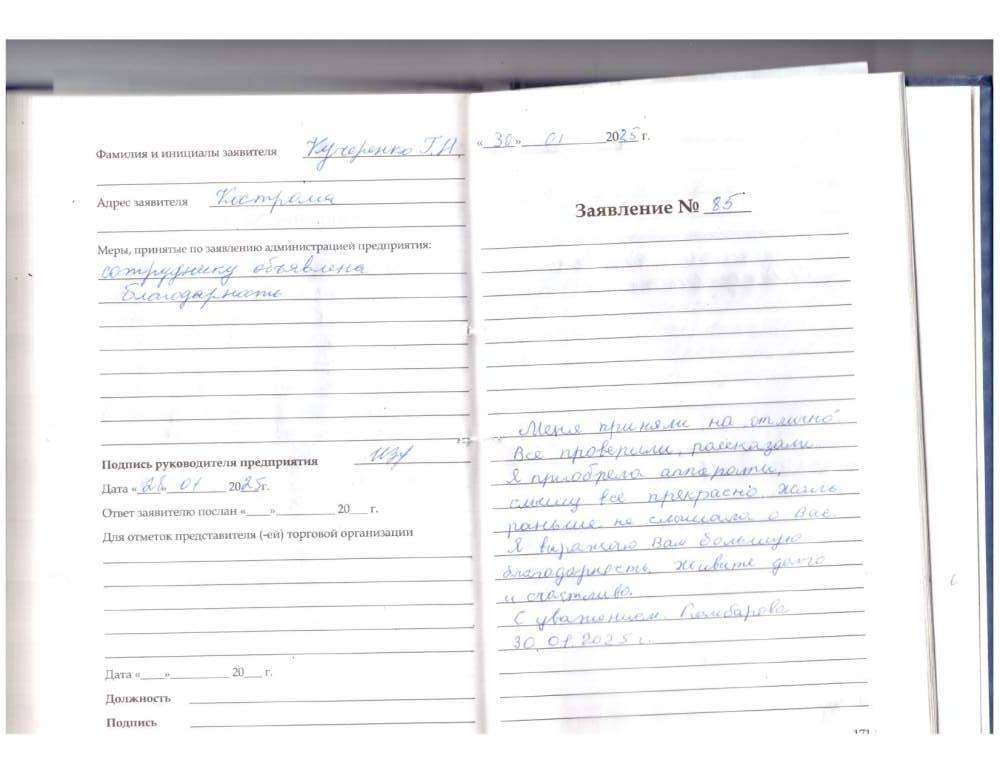 Фамилия и инициалы заявителя Кучеренко Г.Н.
Адрес заявителя Кострома
Меры, принятые по заявлению администрацией предприятия:
сотруднику объявлена
благодарность
Подпись руководителя предприятия
Дата «28» 01 2025г.
Ответ заявителю послан «____»__________ 20___ г.
Для отметок представителя (-ей) торговой организации
Дата «____»__________ 20___ г.
Должность
Подпись
«30» 01 2025 г.
Заявление № 85
Меня приняли на отлично
Все проверили, рассказали
Я приобрела аппараты,
слышу все прекрасно. Жаль
раньше не слышала о Вас
Я выражаю Вам большую
благодарность. Живите долго
и счастливо.
С уважением Камбарова
30.01.2025 г.
171